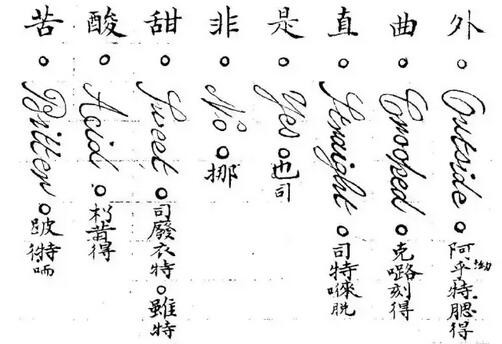 外 ○ Outside ○ 阿乎特腮得
曲 ○ Crooked ○ 克路刻得
直 ○ Straight ○ 司特唻脫
是 ○ Yes ○ 也司
非 ○ No ○ 挪
甜 ○ Sweet ○ 司廢衣特 ○ 雖特
酸 ○ Acid ○ 昔得
苦 ○ Bitter ○ 跛特